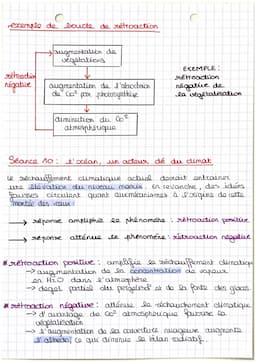 exemple de boucle de rétroaction
augmentation de
végétations
rétroaction
négative
augmentation de l'absorbtion
de Co² par photosynthèse
diminution du Co²
atmosphérique
EXEMPLE :
rétroaction
négative de
la végétalisation
Séance 10 : l'océan, un acteur clé du climat
Le réchauffement climatique actuel devrait entrainer
une élévation du niveau marin. en revanche, des idées
fausses circulent quant aux mécanismes à l'origine de cette
montée des eaux :
→ réponse amplifie le phénomène : rétroaction positive
→ réponse atténue le phénomène : rétroaction négative
* rétroaction positive : amplifie le réchauffement climatique
→ augmentation de la concentration de vapeur
en H₂O dans l'atmosphère
→ dégel partiel du pergélisol et de la fonte des glaces
* rétroaction négative : atténue le réchauffement climatique
→ d'avantage de Co² atmosphérique favorise la
végétalisation
→ l'augmentation de la couverture nuageuse augmente
l'albédo, ce qui diminue le bilan radiatif.